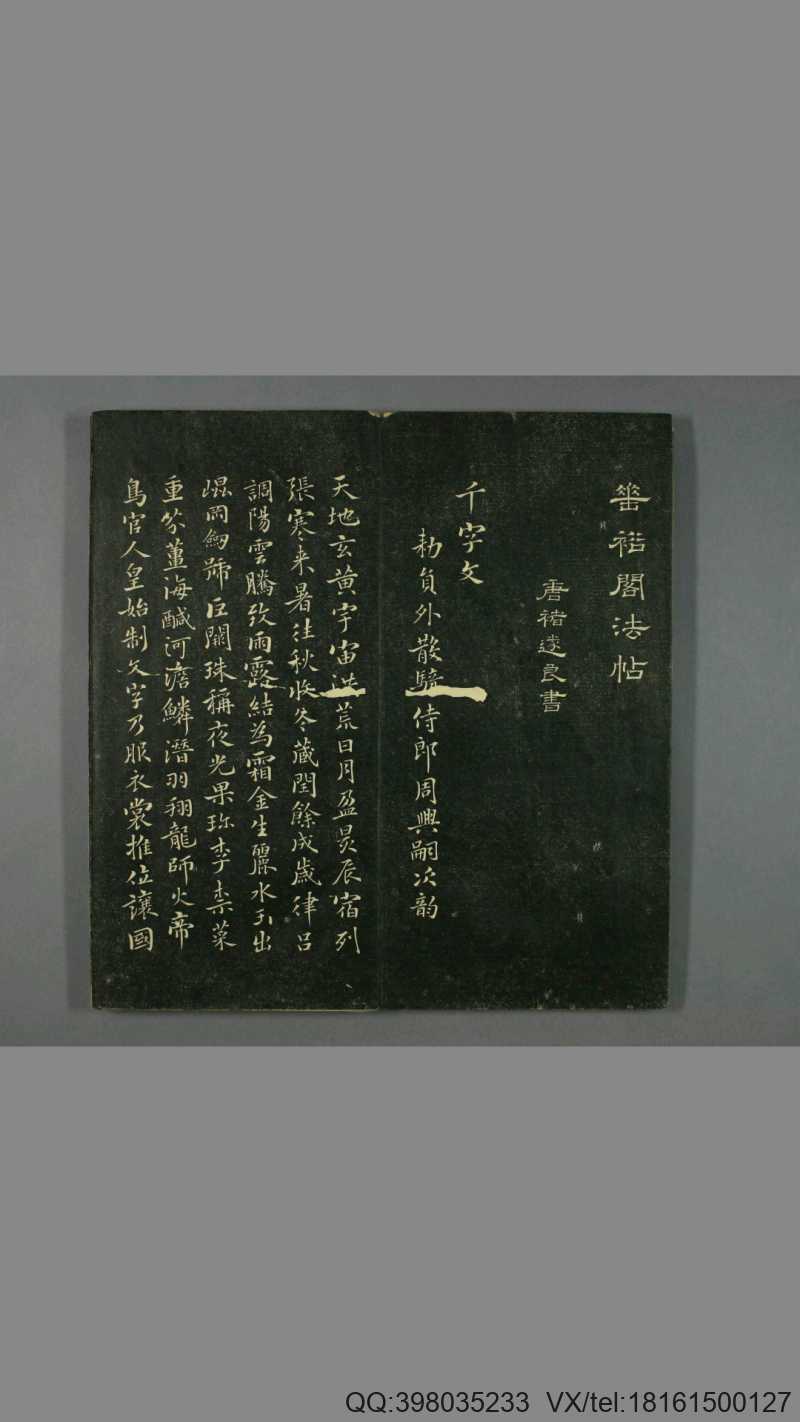 垂裕閣法帖
唐褚遂良書
千字文
勅員外散騎侍郎周興嗣次韵
天地玄黄宇宙洪荒日月盈昃辰宿列
張寒来暑往秋收冬藏閏餘成歲律吕
調陽雲騰致雨露結為霜金生麗水玉出
崐岡劒號巨闕珠稱夜光果珎李柰菜
重芥薑海醎河淡鱗潛羽翔龍師火帝
鳥官人皇始制文字乃服衣裳推位讓國
QQ:398035233 VX/tel:18161500127